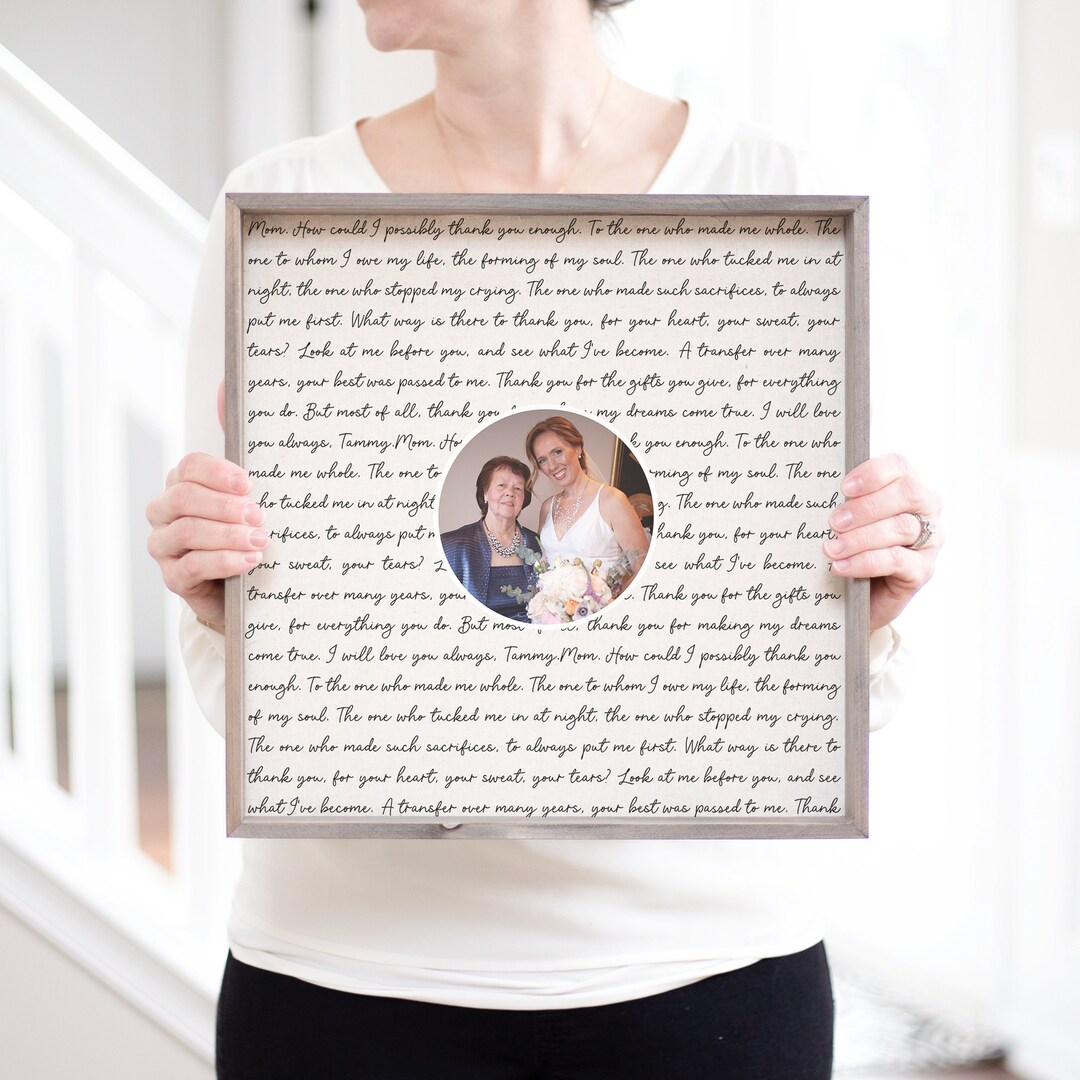 Mom. How could I possibly thank you enough. To the one who made me whole. The
one to whom I owe my life, the forming of my soul. The one who tucked me in at
night, the one who stopped my crying. The one who made such sacrifices, to always
put me first. What way is there to thank you, for your heart, your sweat, your
tears? Look at me before you, and see what I've become. A transfer over many
years, your best was passed to me. Thank you for the gifts you give, for everything
you do. But most of all, thank you my dreams come true. I will love
you always, Tammy.Mom. Ho k you enough. To the one who
made me whole. The one to rming of my soul. The one
who tucked me in at night g. The one who made such
rifices, to always put m hank you, for your heart,
your sweat, your tears? L see what I've become.
transfer over many years, you . Thank you for the gifts you
give, for everything you do. But most thank you for making my dreams
come true. I will love you always, Tammy.Mom. How could I possibly thank you
enough. To the one who made me whole. The one to whom I owe my life, the forming
of my soul. The one who tucked me in at night, the one who stopped my crying.
The one who made such sacrifices, to always put me first. What way is there to
thank you, for your heart, your sweat, your tears? Look at me before you, and see
what I've become. A transfer over many years, your best was passed to me. Thank